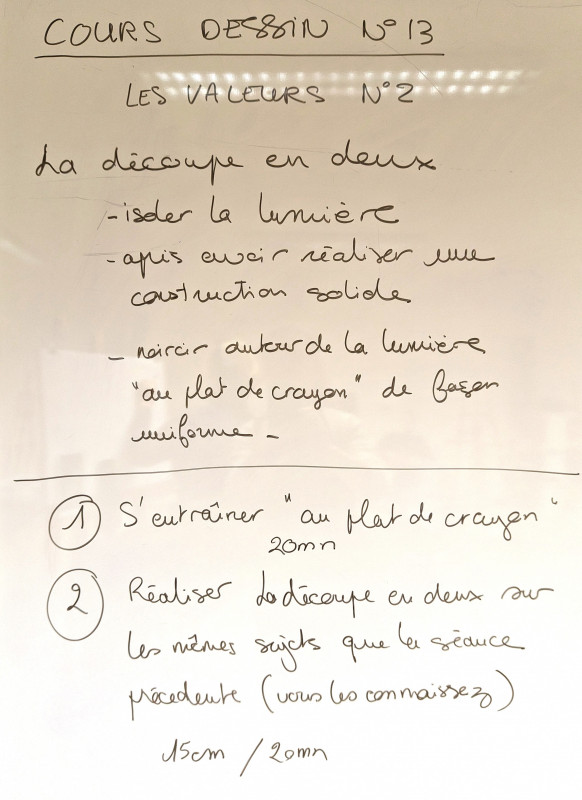 COURS DESSIN N°13
LES VALEURS N°2
La découpe en deux
- isoler la lumière
- après avoir réaliser une
construction solide
- noircir autour de la lumière
"au plat de crayon" de façon
uniforme -
1 S'entraîner "au plat de crayon"
20mn
2 Réaliser la découpe en deux sur
les mêmes sujets que la séance
précedente (vous les connaissez)
15cm / 20mn